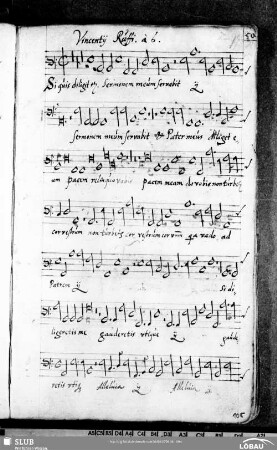 Vincentij Ruffi. à 6.
50.
Si quis diligit me, Sermonem meum servabit ij
sermonem meum servabit Pater meus diliget e
um pacem relinquo vobis pacem meam do vobis non turbetur
cor vestrum non turbetur cor vestrum cor vrm qa vado ad
Patrem ij Si di
ligeretis me gauderetis utique ij gaude
retis utiq Alleluia ij Alleluia
105
SLUB
Wir führen Wissen.
LÖBAU